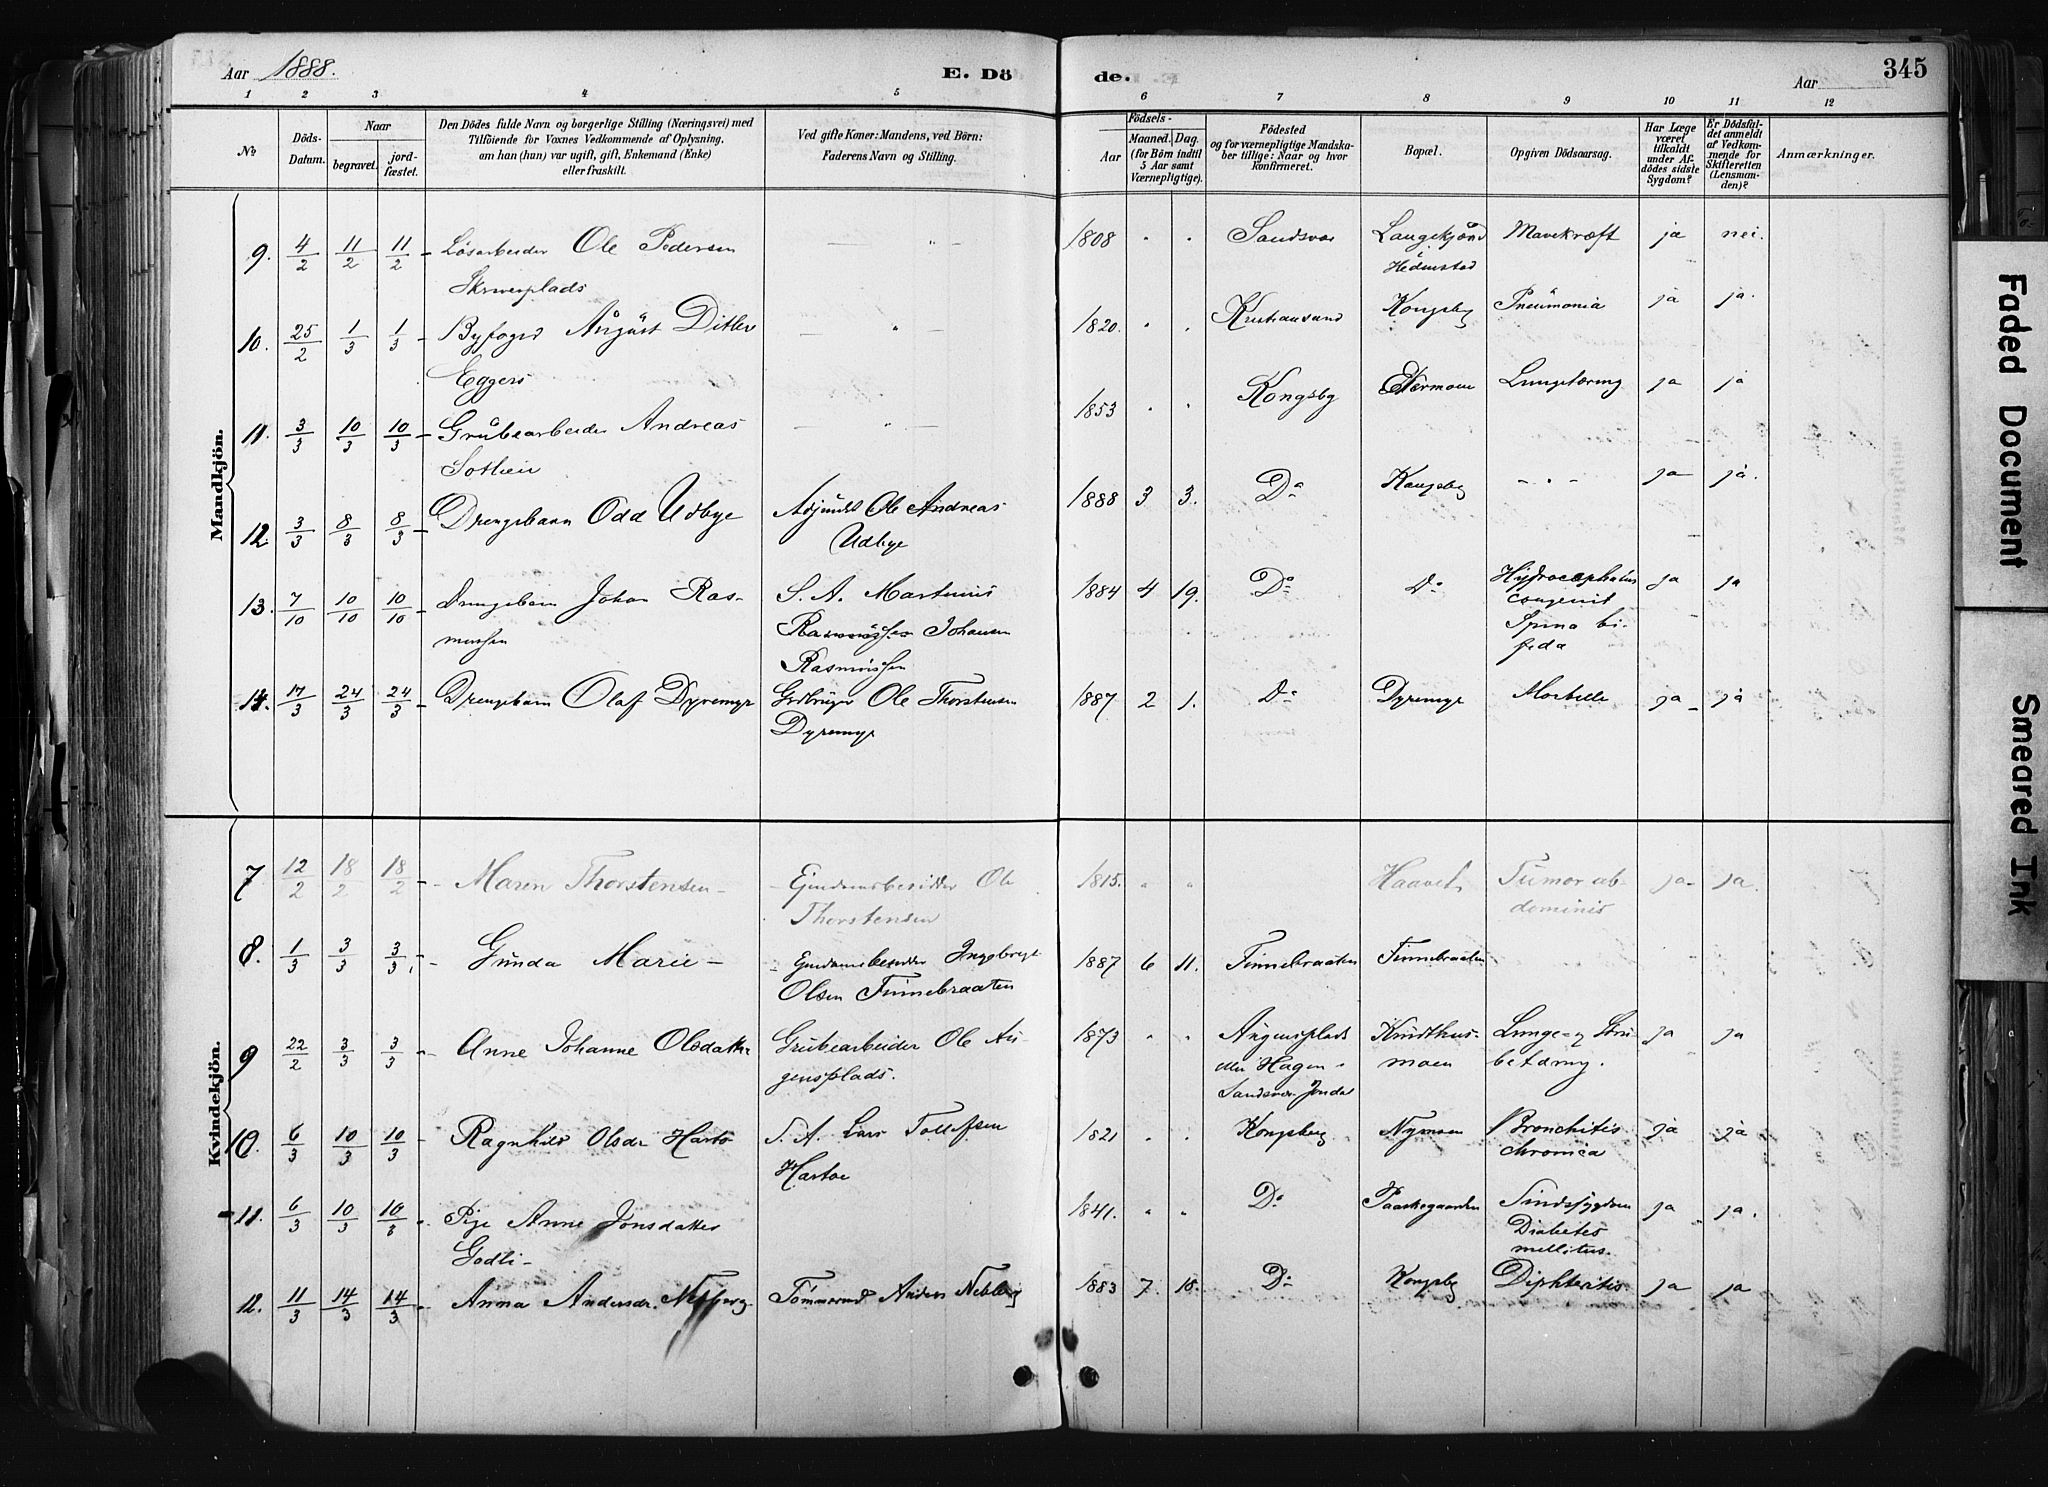 Aar 1888.
E. Dö
de.
Aar
345
1 2 3 4 5 6 7 8 9 10 11 12
No
Döds-Datum.
Naar
begravet.
jord-fæstet.
Den Dödes fulde Navn og borgerlige Stilling (Næringsvei) med
Tilföiende for Voxnes Vedkommende af Oplysning,
om han (hun) var ugift, gift, Enkemand (Enke)
eller fraskilt.
Ved gifte Koner: Mandens, ved Börn:
Faderens Navn og Stilling.
Födsels-
Aar
Maaned. Dag.
(for Börn indtil
5 Aar samt
Værnepligtige).
Födested
og for værnepligtige Mandska-
ber tillige: Naar og hvor
konfirmeret.
Bopæl.
Opgiven Dödsaarsag.
Har Læge
været
tilkaldt
under Af-
dödes sidste
Sygdom?
Er Dödsfal-
det anmeldt
af Vedkom-
mende for
Skifteretten
(Lensman-
den)?
Anmærkninger.
Mandkjön.
9. 4/2 11/2 11/2 - Lösarbeider Ole Pedersen 1808 " " Sandsvær Langekjönd Mavekræft ja nei.
Hedenstad
10. 25/2 1/3 1/3 - Byfoged August Ditlev - " - 1820. " " Kristiansand Kongsbg Pneumonia ja ja.
Eggers
11. 3/3 10/3 10/3 - Grubearbeider Andreas - " - 1853 " " Kongsbg Lungetæring ja ja
12 3/3 8/3 8/3 - Drengebarn Odd Udbye Adjunkt Ole Andreas 1888 3 3. Do Kongsbg - " - ja ja.
Udbye
13. 7/10 10/10 10/10 - Drengebarn Johan Ras- S. A. Martinius 1884 4 19. Do Do Hydrocephalus ja ja
mussen Rasmussen Johansen congenit
Rasmussen Spina bi-
fida
14. 17/3 24/3 24/3 - Drengebarn Olaf Dyremyr Grdbruger Ole Thorstensen 1887 2 1. Do Dyremyr Morbilli ja - ja
Dyremyr
Kvindekjön.
7 12/2 18/2 18/2 - Maren Thorstensen - - Eiendomsbesidder Ole 1815. " " Haavet Tumor ab- ja- ja.
Thorstensen dominis
8. 1/3 3/3 3/3 - Gunda Marie - - Eiendomsbesidder Ingebregt 1887 6 11. Tinnebraaten Tinnebraaten
Olsen Tinnebraaten
9 22/2 3/3 3/3 - Anne Johanne Olsdatter Grubearbeider Ole Au- 1873 " " Augensplads Knudthus- Lunge- og Stru- ja ja
gensplads. eller Hagen moen betæring.
Sandsvær Jondal
10. 6/3 10/3 10/3 - Ragnhild Olsdr Harto S. A. Lars Tollefsen 1821 " " Kongsberg Nymoen Bronchitis ja ja
Hartoe chronica
11. 6/3 10/3 10/3 - Pige Anne Jonsdatter 1841. " " Do Paaskegaarden Sindssygdom ja ja.
Godli - Diabetes
mellitus.
12. 11/3 14/3 14/3 - Anna Andersdr. Nebberg Tömmermd Anders Nebberg 1883 7. 18. Do Kongsbg Diphteritis ja ja
Faded Document
Smeared Ink